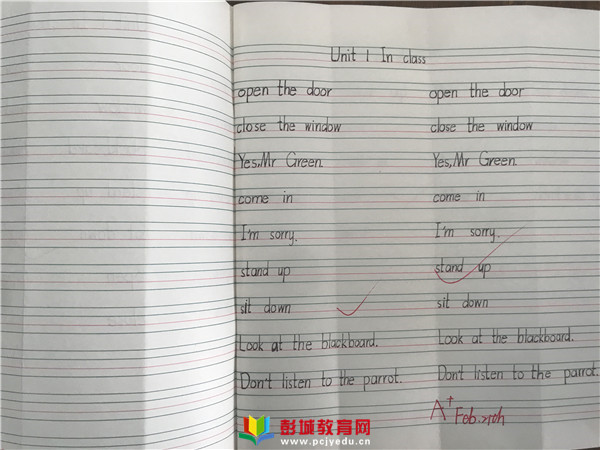 Unit 1 In class
open the door open the door
close the window close the window
Yes,Mr Green. Yes,Mr Green.
come in come in
I'm sorry. I'm sorry.
stand up stand up
sit down sit down
Look at the blackboard. Look at the blackboard.
Don't listen to the parrot. Don't listen to the parrot.
A+ Feb.
彭城教育网
www.pcjyedu.cn